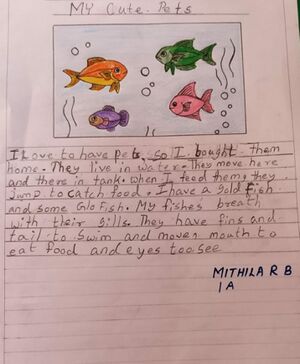 MY Cute Pets
I Love to have pets, so I bought them
home. They live in water. They move here
and there in tank. when I feed them, they
jump to catch food. I have a Gold Fish
and some Glo Fish. My fishes breath
with their gills. They have fins and
tail to swim and moves mouth to
eat food and eyes too see
MITHILA R B
I A